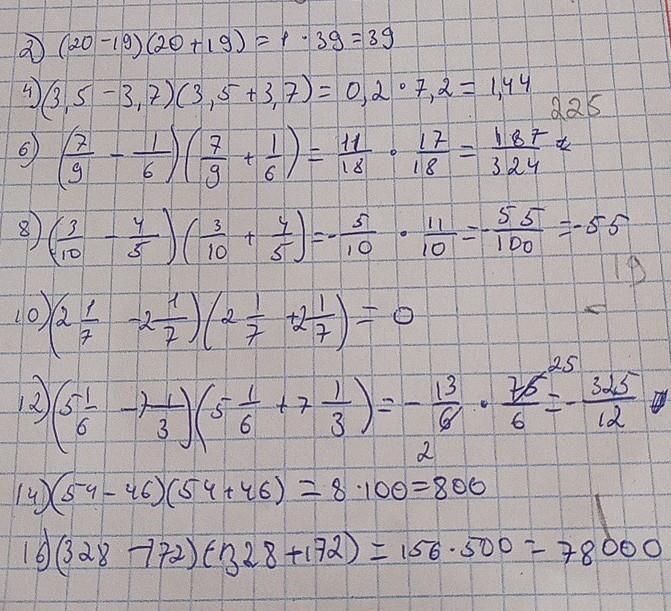 2) (20-19)(20+19) = 1 · 39 = 39
4) (3,5 - 3,7)(3,5 + 3,7) = 0,2 · 7,2 = 1,44
225
6) (7/9 - 1/6)(7/9 + 1/6) = 11/18 · 17/18 = 187/324
8) (3/10 - 4/5)(3/10 + 4/5) = -5/10 · 11/10 = -55/100 = -55
19
10) (2 1/7 - 2 1/7)(2 1/7 + 2 1/7) = 0
12) (5 1/6 - 7 1/3)(5 1/6 + 7 1/3) = - 13/6 · 75/6 = - 325/12
25
2
14) (54 - 46)(54 + 46) = 8 · 100 = 800
16) (328 - 172)(328 + 172) = 156 · 500 = 78000